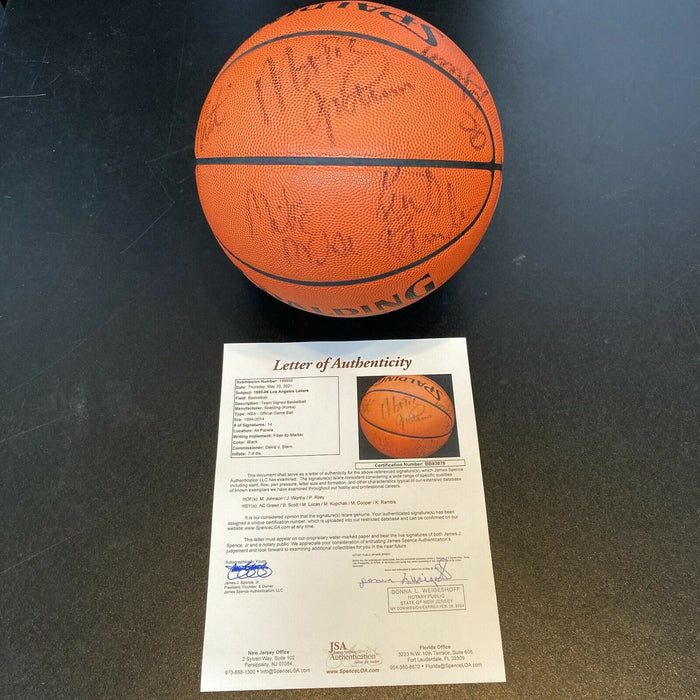 SPALDING
Mike
McGee
SPALDING
Letter of Authenticity
Submission Number: 190932
Date: Thursday, May 20, 2021
Subject: 1985-86 Los Angeles Lakers
Field: Basketball
Description: Team Signed Basketball
Manufacturer: Spalding (Korea)
Type: NBA - Official Game Ball
Era: 1984-2014
# of Signatures: 14
Location: All Panels
Writing Implement: Fiber-tip Marker
Color: Black
Commissioner: David J. Stern
Inflate: 7-9 lbs
SPALDING
Certification Number: BB83878
This document shall serve as a letter of authenticity for the above-referenced signature(s), which James Spence
Authentication LLC has examined. The signature(s) is/are consistent considering a wide range of specific qualities
including slant, flow, pen pressure, letter size and formation, and other characteristics typical of our extensive database
of known exemplars we have examined throughout our hobby and professional careers.
HOF(s): M. Johnson / J. Worthy / P. Riley
KEY(s): AC Green / B. Scott / M. Lucas / M. Kupchak / M. Cooper / K. Rambis
It is our considered opinion that the signature(s) is/are genuine. Your signature(s) has been
assigned a unique certification number, which is uploaded into our restricted database and can be confirmed on our
website www.SpenceLOA.com at any time.
This document is printed on our proprietary water-marked paper and bear the live signatures of both James J
Spence, Jr and a notary public. We appreciate your consideration of entrusting James Spence Authentication's
judgement and look forward to examining additional collectibles for you in the near future.
Authoritatively Yours,
James J. Spence, Jr.
President, Founder, & Owner
James Spence Authentication, LLC
DONNA L. WEIGESHOFF
NOTARY PUBLIC
STATE OF NEW JERSEY
MY COMMISSION EXPIRES FEB. 28, 2024
New Jersey Office
2 Sylvan Way, Suite 102
Parsippany, NJ 07054
973-898-1300 • SpenceLOA.com
JSA
Authentication
Florida Office
3223 N.W. 10th Terrace, Suite 605
Fort Lauderdale, FL 33309
954-380-8670 • SpenceLOA.com